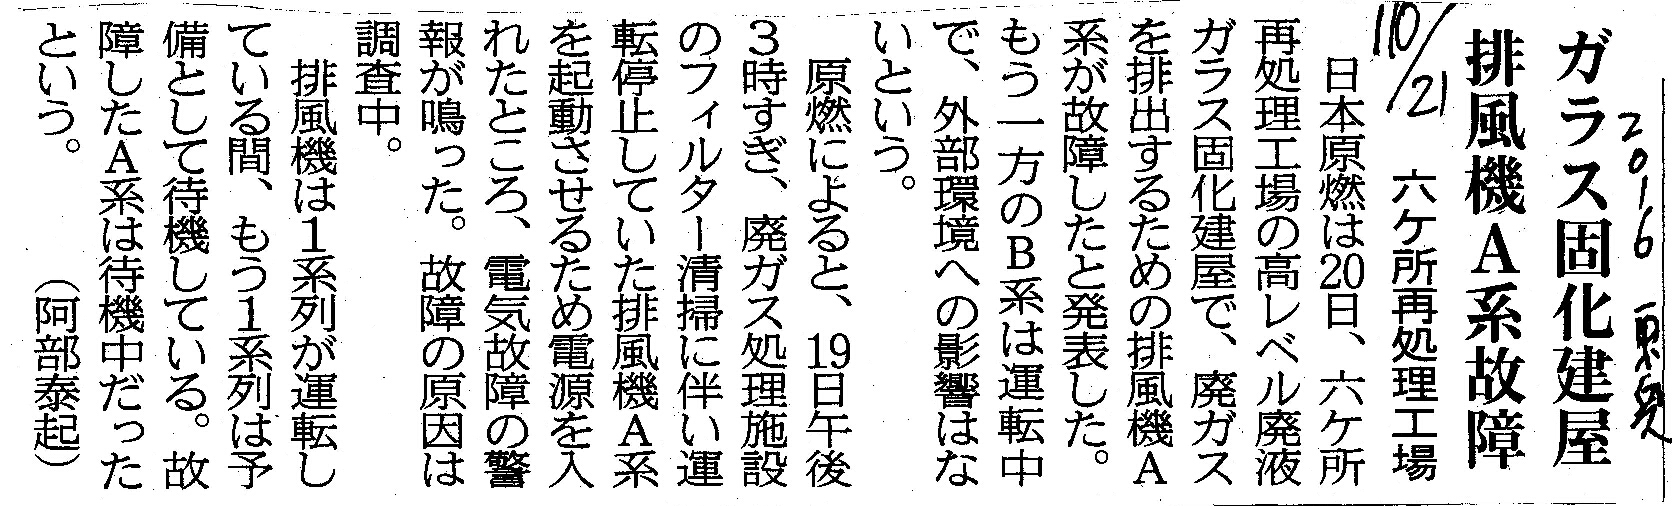 2016 東奥
10/21
ガラス固化建屋
排風機A系故障
六ケ所再処理工場
日本原燃は20日、六ケ所
再処理工場の高レベル廃液
ガラス固化建屋で、廃ガス
を排出するための排風機A
系が故障したと発表した。
もう一方のB系は運転中
で、外部環境への影響はな
いという。
原燃によると、19日午後
3時すぎ、廃ガス処理施設
のフィルター清掃に伴い運
転停止していた排風機A系
を起動させるため電源を入
れたところ、電気故障の警
報が鳴った。故障の原因は
調査中。
排風機は1系列が運転し
ている間、もう1系列は予
備として待機している。故
障したA系は待機中だった
という。
（阿部泰起）